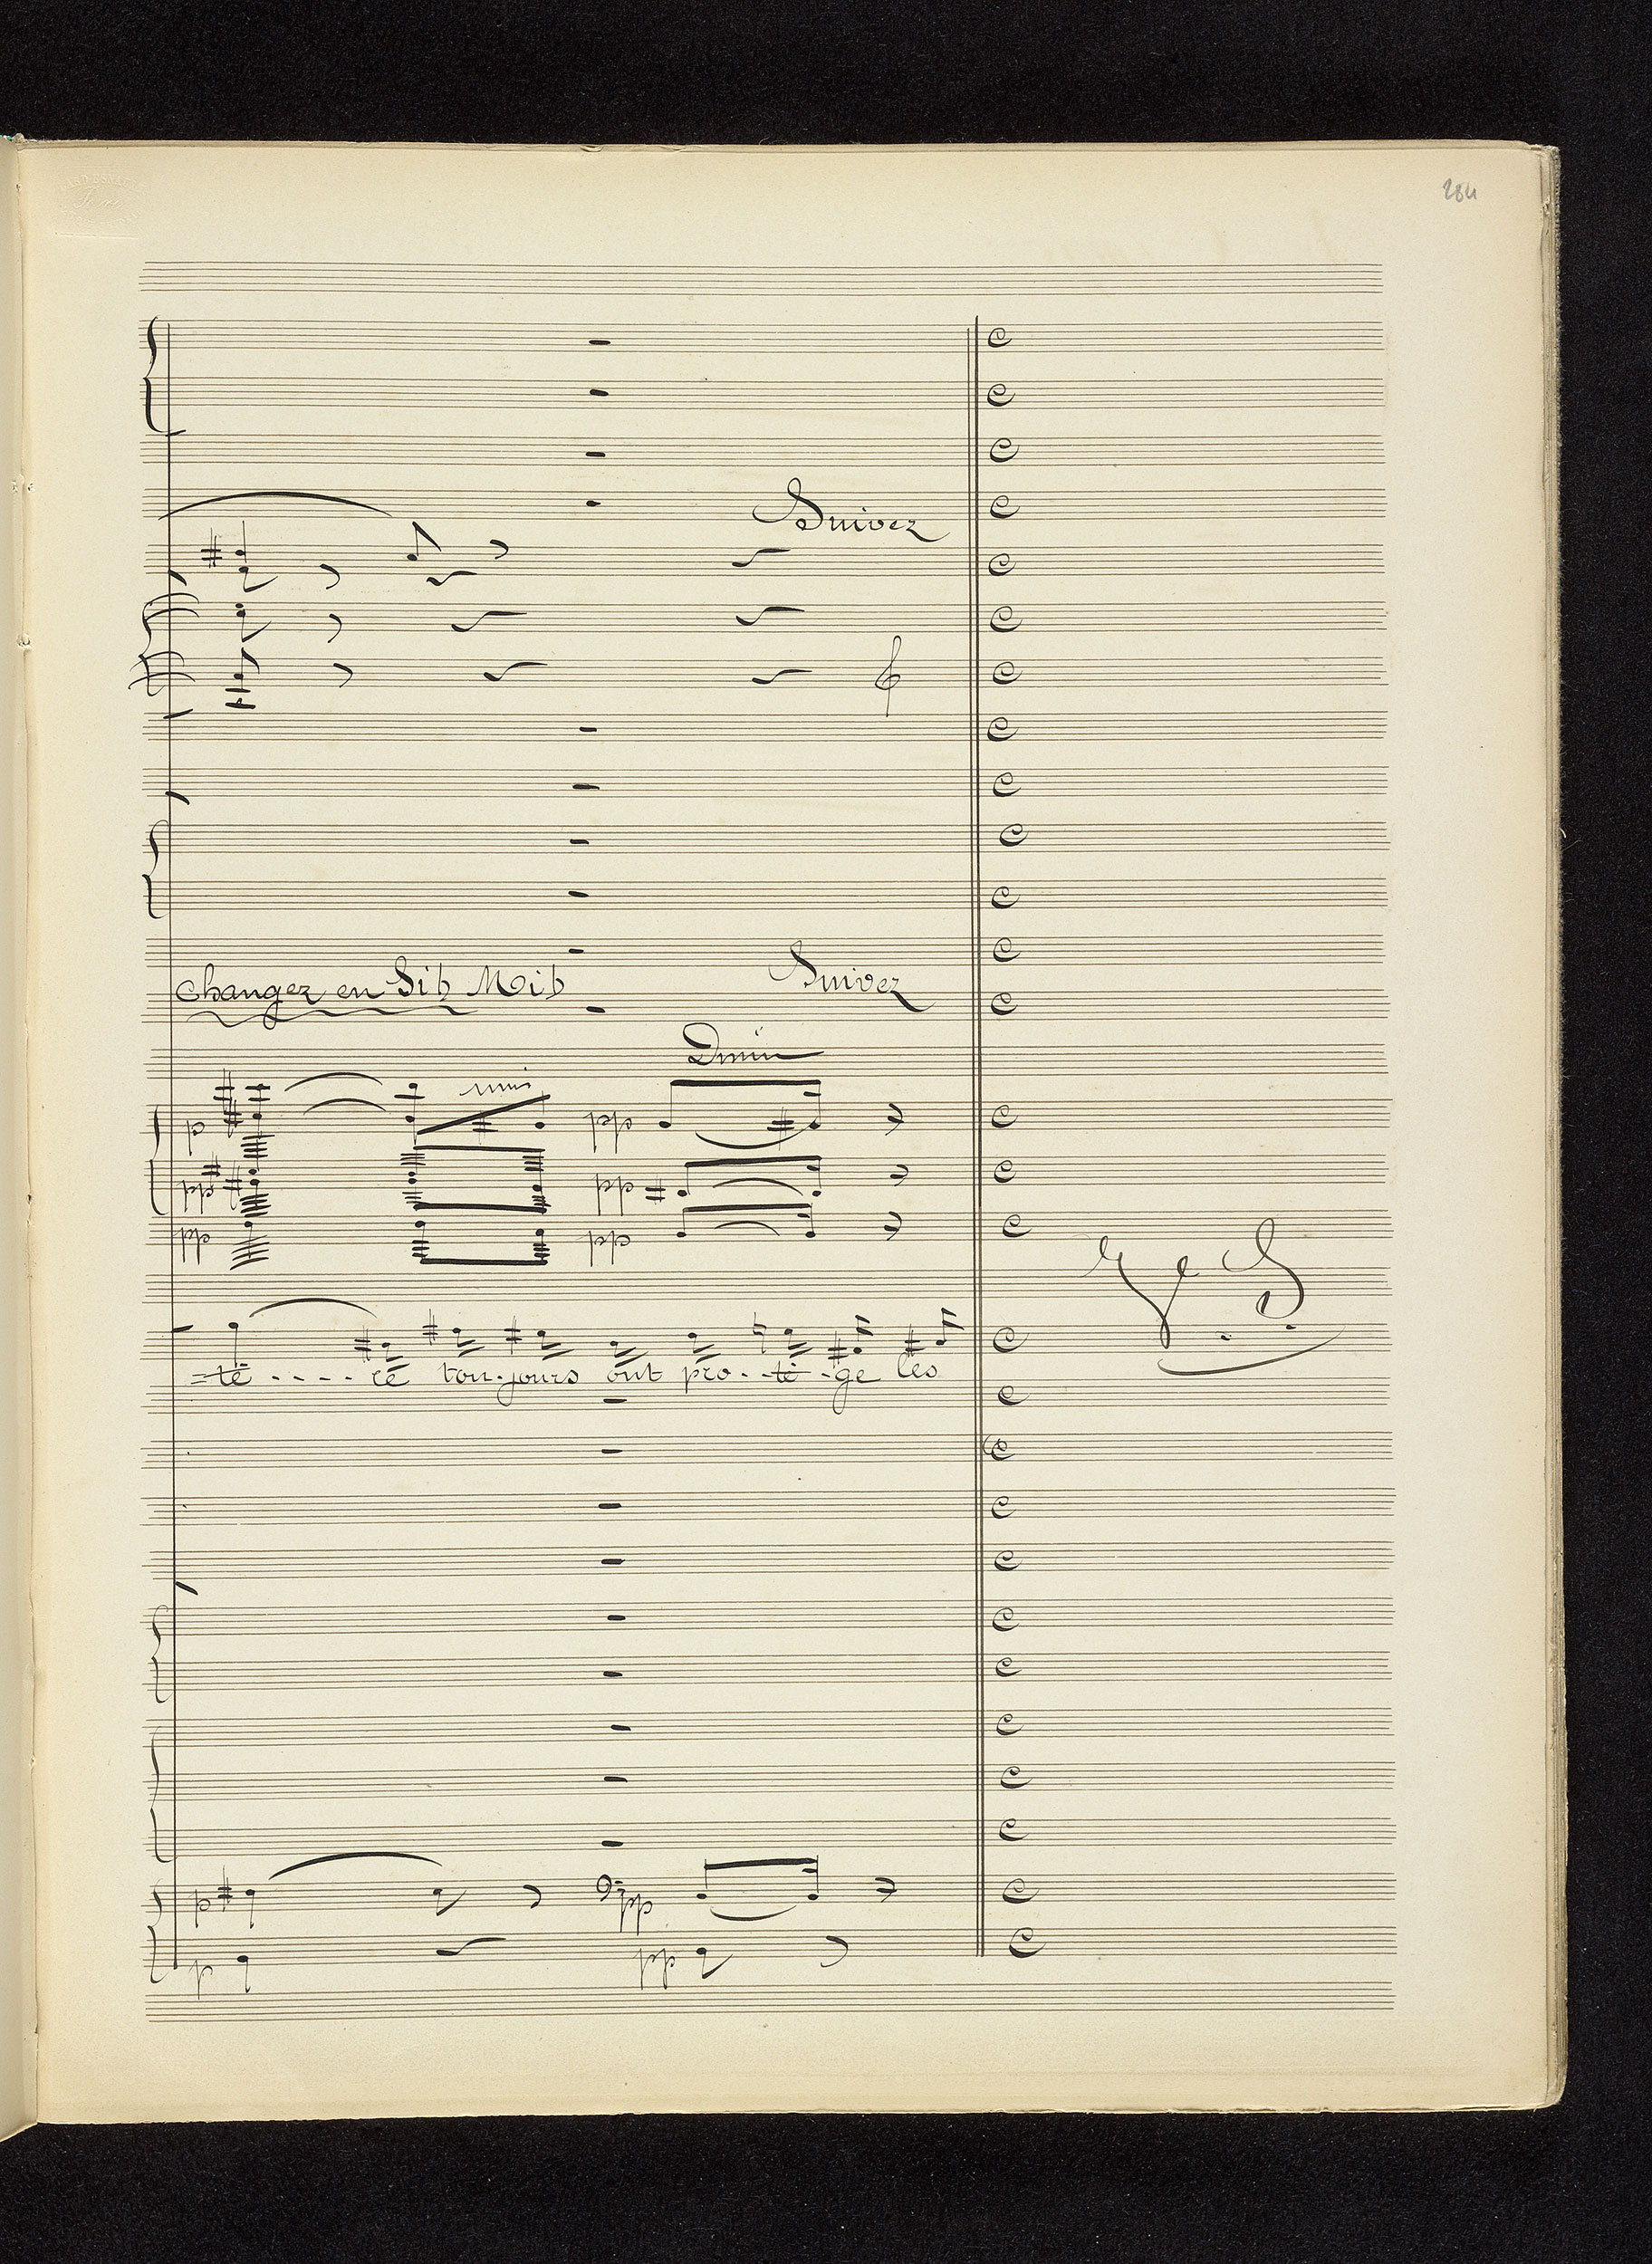 284
Suivez
Changez en Si♮ Mi♭
Suivez
Dimin
unis
p
pp
pp
pp
pp
pp
=té - - - - ré tou-jours ont pro - - té - gé les
V. S.
p
pp
p
pp